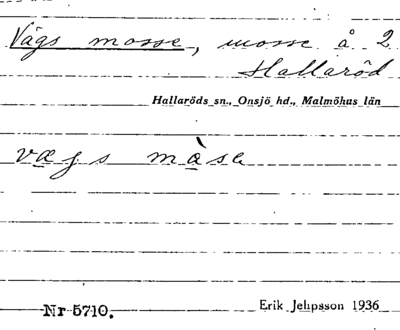 Vägs mosse, mosse å 2
Hallaröd
Hallaröds sn., Onsjö hd., Malmöhus län
vægs màse
Nr 5710. Erik Jehpsson 1936